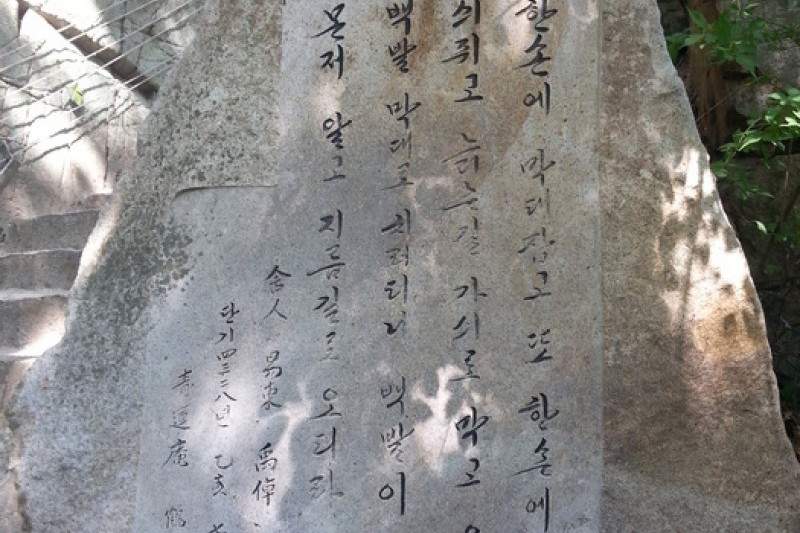 한손에 막대잡고 또 한손에
싀쥐고 늙는길 가싀로 막고
백발 막대로 치려터니 백발이
몬저 알고 지름길로 오더라
舍人 易東 禹倬
단기四三二八년 乙亥